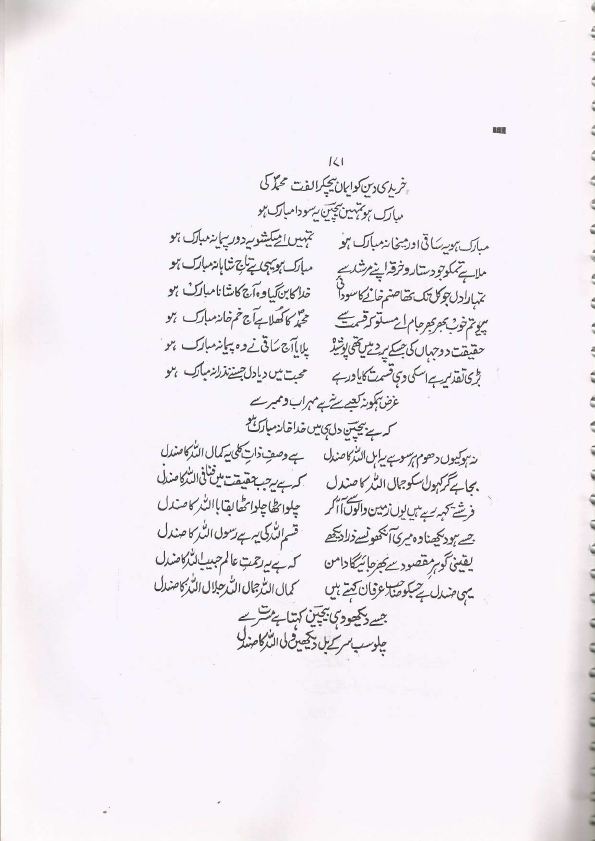 ۱۷۱
خریدی دین کو ایماں بیچکر الفت محمدؐ کی
مبارک ہو تمہیں بیچین یہ سودا مبارک ہو
مبارک ہو یہ ساقی اور میخانہ مبارک ہو تمہیں اے میکشو یہ دور پیمانہ مبارک ہو
ملا ہے تمکو جو دستار و خرقہ اپنے مرشد سے مبارک ہو یہی ہے تاج شاہانہ مبارک ہو
تمہارا دل جو کل تک تھا صنم خانے کا سودائی خدا کا بن گیا وہ آج کاشانا مبارک ہو
پیو تم خوب بھر بھر جام اے مستو کہ قسمت سے محمدؐ کا کھلا ہے آج خم خانہ مبارک ہو
حقیقت دو جہاں کی جسکے پردے میں تھی پوشیدہ پلایا آج ساقی نے وہ پیمانہ مبارک ہو
بڑی تقدیر ہے اسکی وہی قسمت کا یاور ہے محبت میں دیا دل جسنے نذرانہ مبارک ہو
غرض ہمکو نہ کعبے سے نہ ہے مہراب و ممبر سے
کہ ہے بیچین دل ہی میں خدا خانہ مبارک ہو
نہ ہو کیوں دھوم ہر سو ہے یہ اہل اللہ کا صندل ہے وصفِ ذات کلی یہ کمال اللہ کا صندل
بجا ہے گر کہوں اسکو جمال اللہ کا صندل کہ ہے یہ جب حقیقت میں فنا فی اللہ کا صندل
فرشتے کہہ رہے ہیں یوں زمین والوں سے آ آ کر چلو اٹھا چلو اٹھا بقا باللہ کا صندل
جسے ہو دیکھنا وہ میری آنکھونسے ذرا دیکھے قسم اللہ کی یہ ہے رسول اللہ کا صندل
یقینی گوہر مقصود سے بھر جائیگا دامن کہ ہے یہ رحمتِ عالم حبیب اللہ کا صندل
یہی صندل ہے جسکو صاحب عرفان کہتے ہیں کمال اللہ جمال اللہ جلال اللہ کا صندل
جسے دیکھو وہی بیچین کہتا ہے مسرت سے
چلو سب سر کے بل دیکھیں ولی اللہ کا صندل